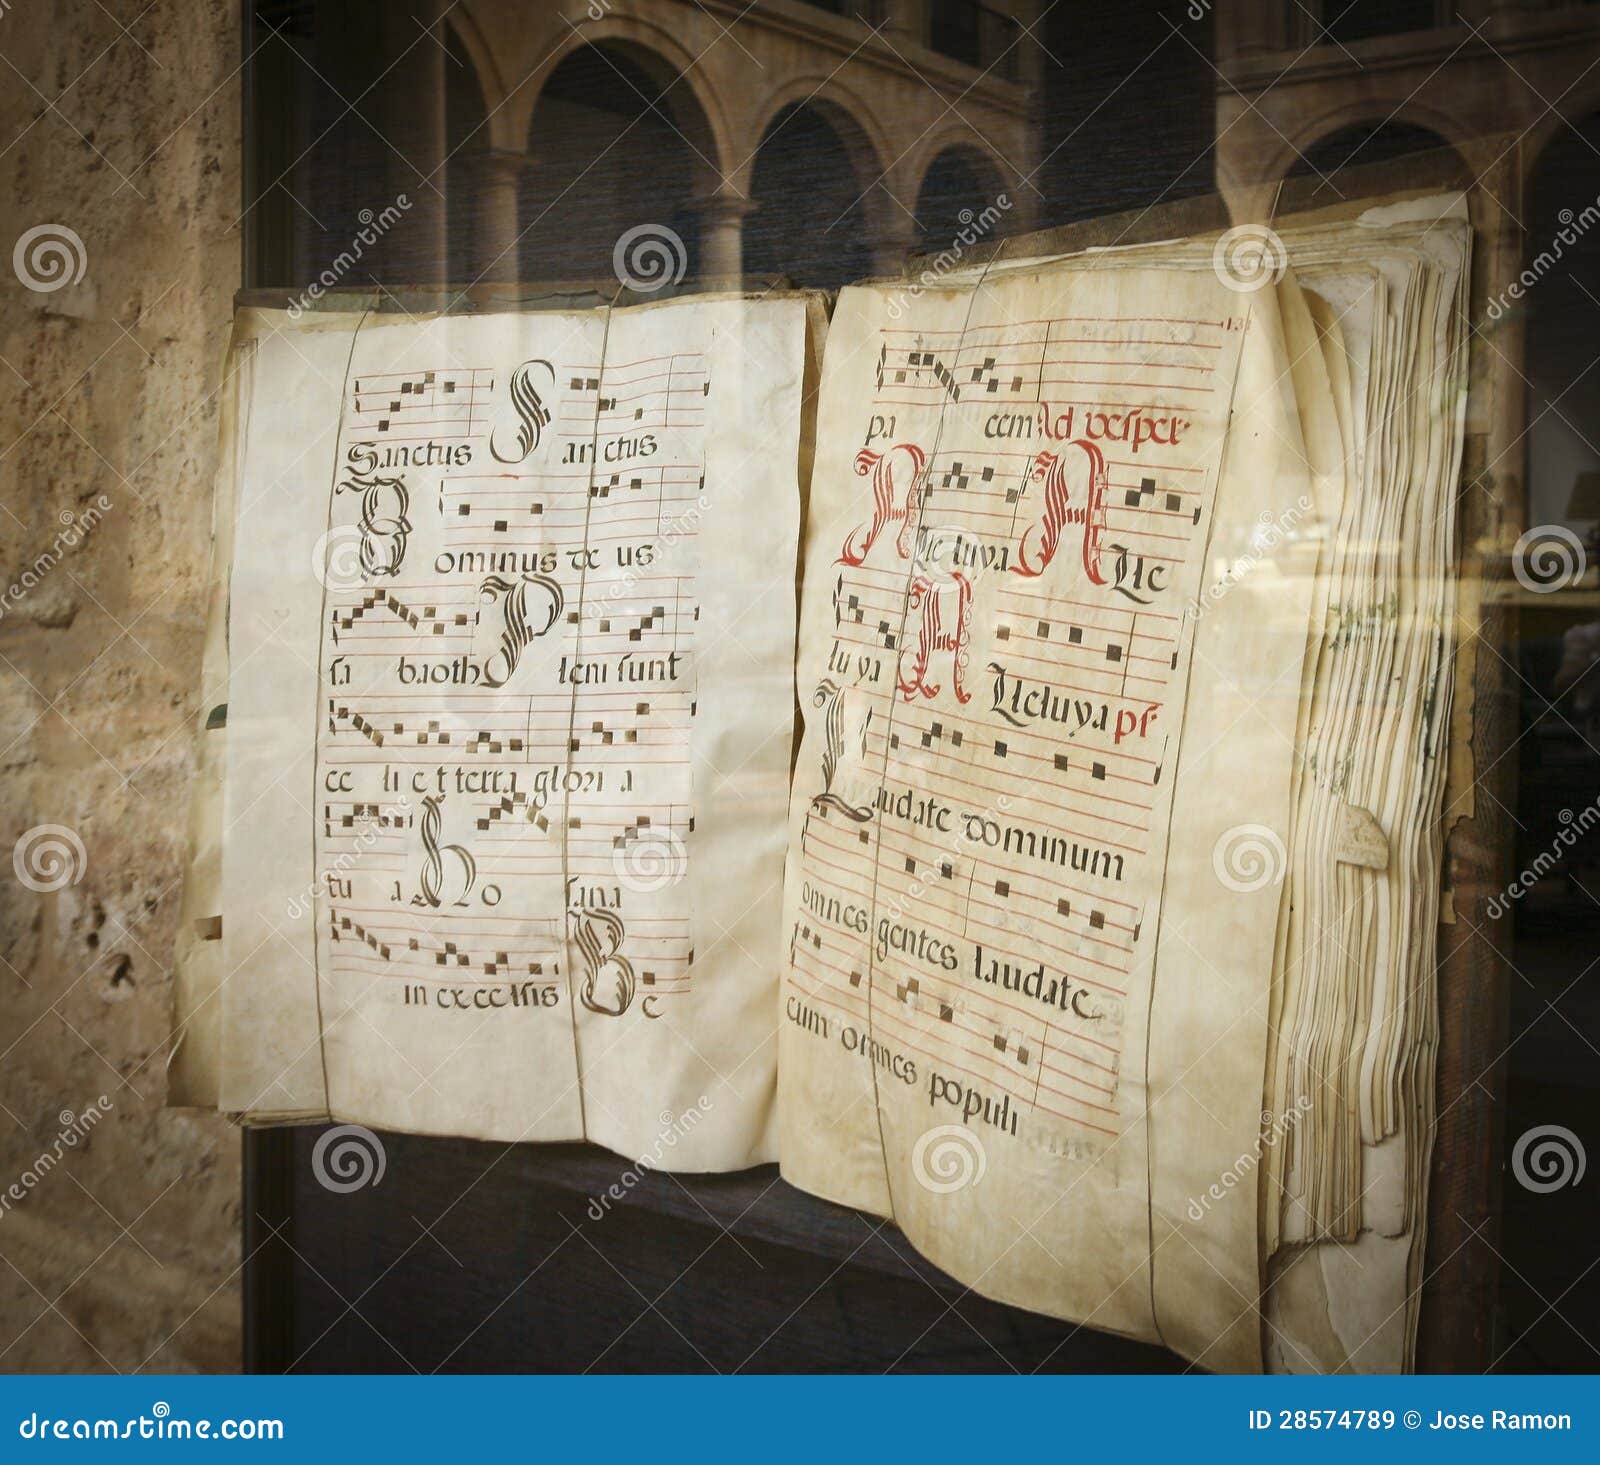 Sanctus Sanctus
Dominus de us
sa baoth Pleni sunt
ce li e t terra glori a
tu a Ho sana
in excelsis Be
131
pa cem Ad vesper
Alleluya Alle
lu ya Alleluya ps
Laudate dominum
omnes gentes laudate
cum omnes populi
dreamstime.com
ID 28574789 © Jose Ramon